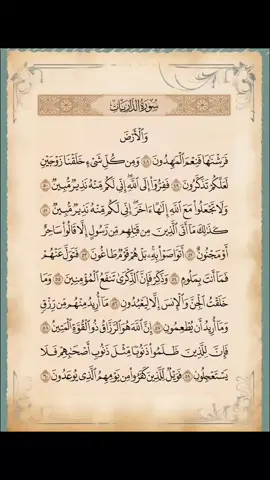 سُورَةُ الذَّارِيَاتِ
وَٱلۡأَرۡضَ
فَرَشۡنَٰهَا فَنِعۡمَ ٱلۡمَٰهِدُونَ ٤٨ وَمِن كُلِّ شَيۡءٍ خَلَقۡنَا زَوۡجَيۡنِ
لَعَلَّكُمۡ تَذَكَّرُونَ ٤٩ فَفِرُّوٓاْ إِلَى ٱللَّهِۖ إِنِّي لَكُم مِّنۡهُ نَذِيرٞ مُّبِينٞ ٥٠
وَلَا تَجۡعَلُواْ مَعَ ٱللَّهِ إِلَٰهًا ءَاخَرَۖ إِنِّي لَكُم مِّنۡهُ نَذِيرٞ مُّبِينٞ ٥١
كَذَٰلِكَ مَآ أَتَى ٱلَّذِينَ مِن قَبۡلِهِم مِّن رَّسُولٍ إِلَّا قَالُواْ سَاحِرٌ
أَوۡ مَجۡنُونٌ ٥٢ أَتَوَاصَوۡاْ بِهِۦۚ بَلۡ هُمۡ قَوۡمٞ طَاغُونَ ٥٣ فَتَوَلَّ عَنۡهُمۡ
فَمَآ أَنتَ بِمَلُومٖ ٥٤ وَذَكِّرۡ فَإِنَّ ٱلذِّكۡرَىٰ تَنفَعُ ٱلۡمُؤۡمِنِينَ ٥٥ وَمَا
خَلَقۡتُ ٱلۡجِنَّ وَٱلۡإِنسَ إِلَّا لِيَعۡبُدُونِ ٥٦ مَآ أُرِيدُ مِنۡهُم مِّن رِّزۡقٖ
وَمَآ أُرِيدُ أَن يُطۡعِمُونِ ٥٧ إِنَّ ٱللَّهَ هُوَ ٱلرَّزَّاقُ ذُو ٱلۡقُوَّةِ ٱلۡمَتِينُ ٥٨
فَإِنَّ لِلَّذِينَ ظَلَمُواْ ذَنُوبٗا مِّثۡلَ ذَنُوبِ أَصۡحَٰبِهِمۡ فَلَا
يَسۡتَعۡجِلُونِ ٥٩ فَوَيۡلٞ لِّلَّذِينَ كَفَرُواْ مِن يَوۡمِهِمُ ٱلَّذِي يُوعَدُونَ ٦٠